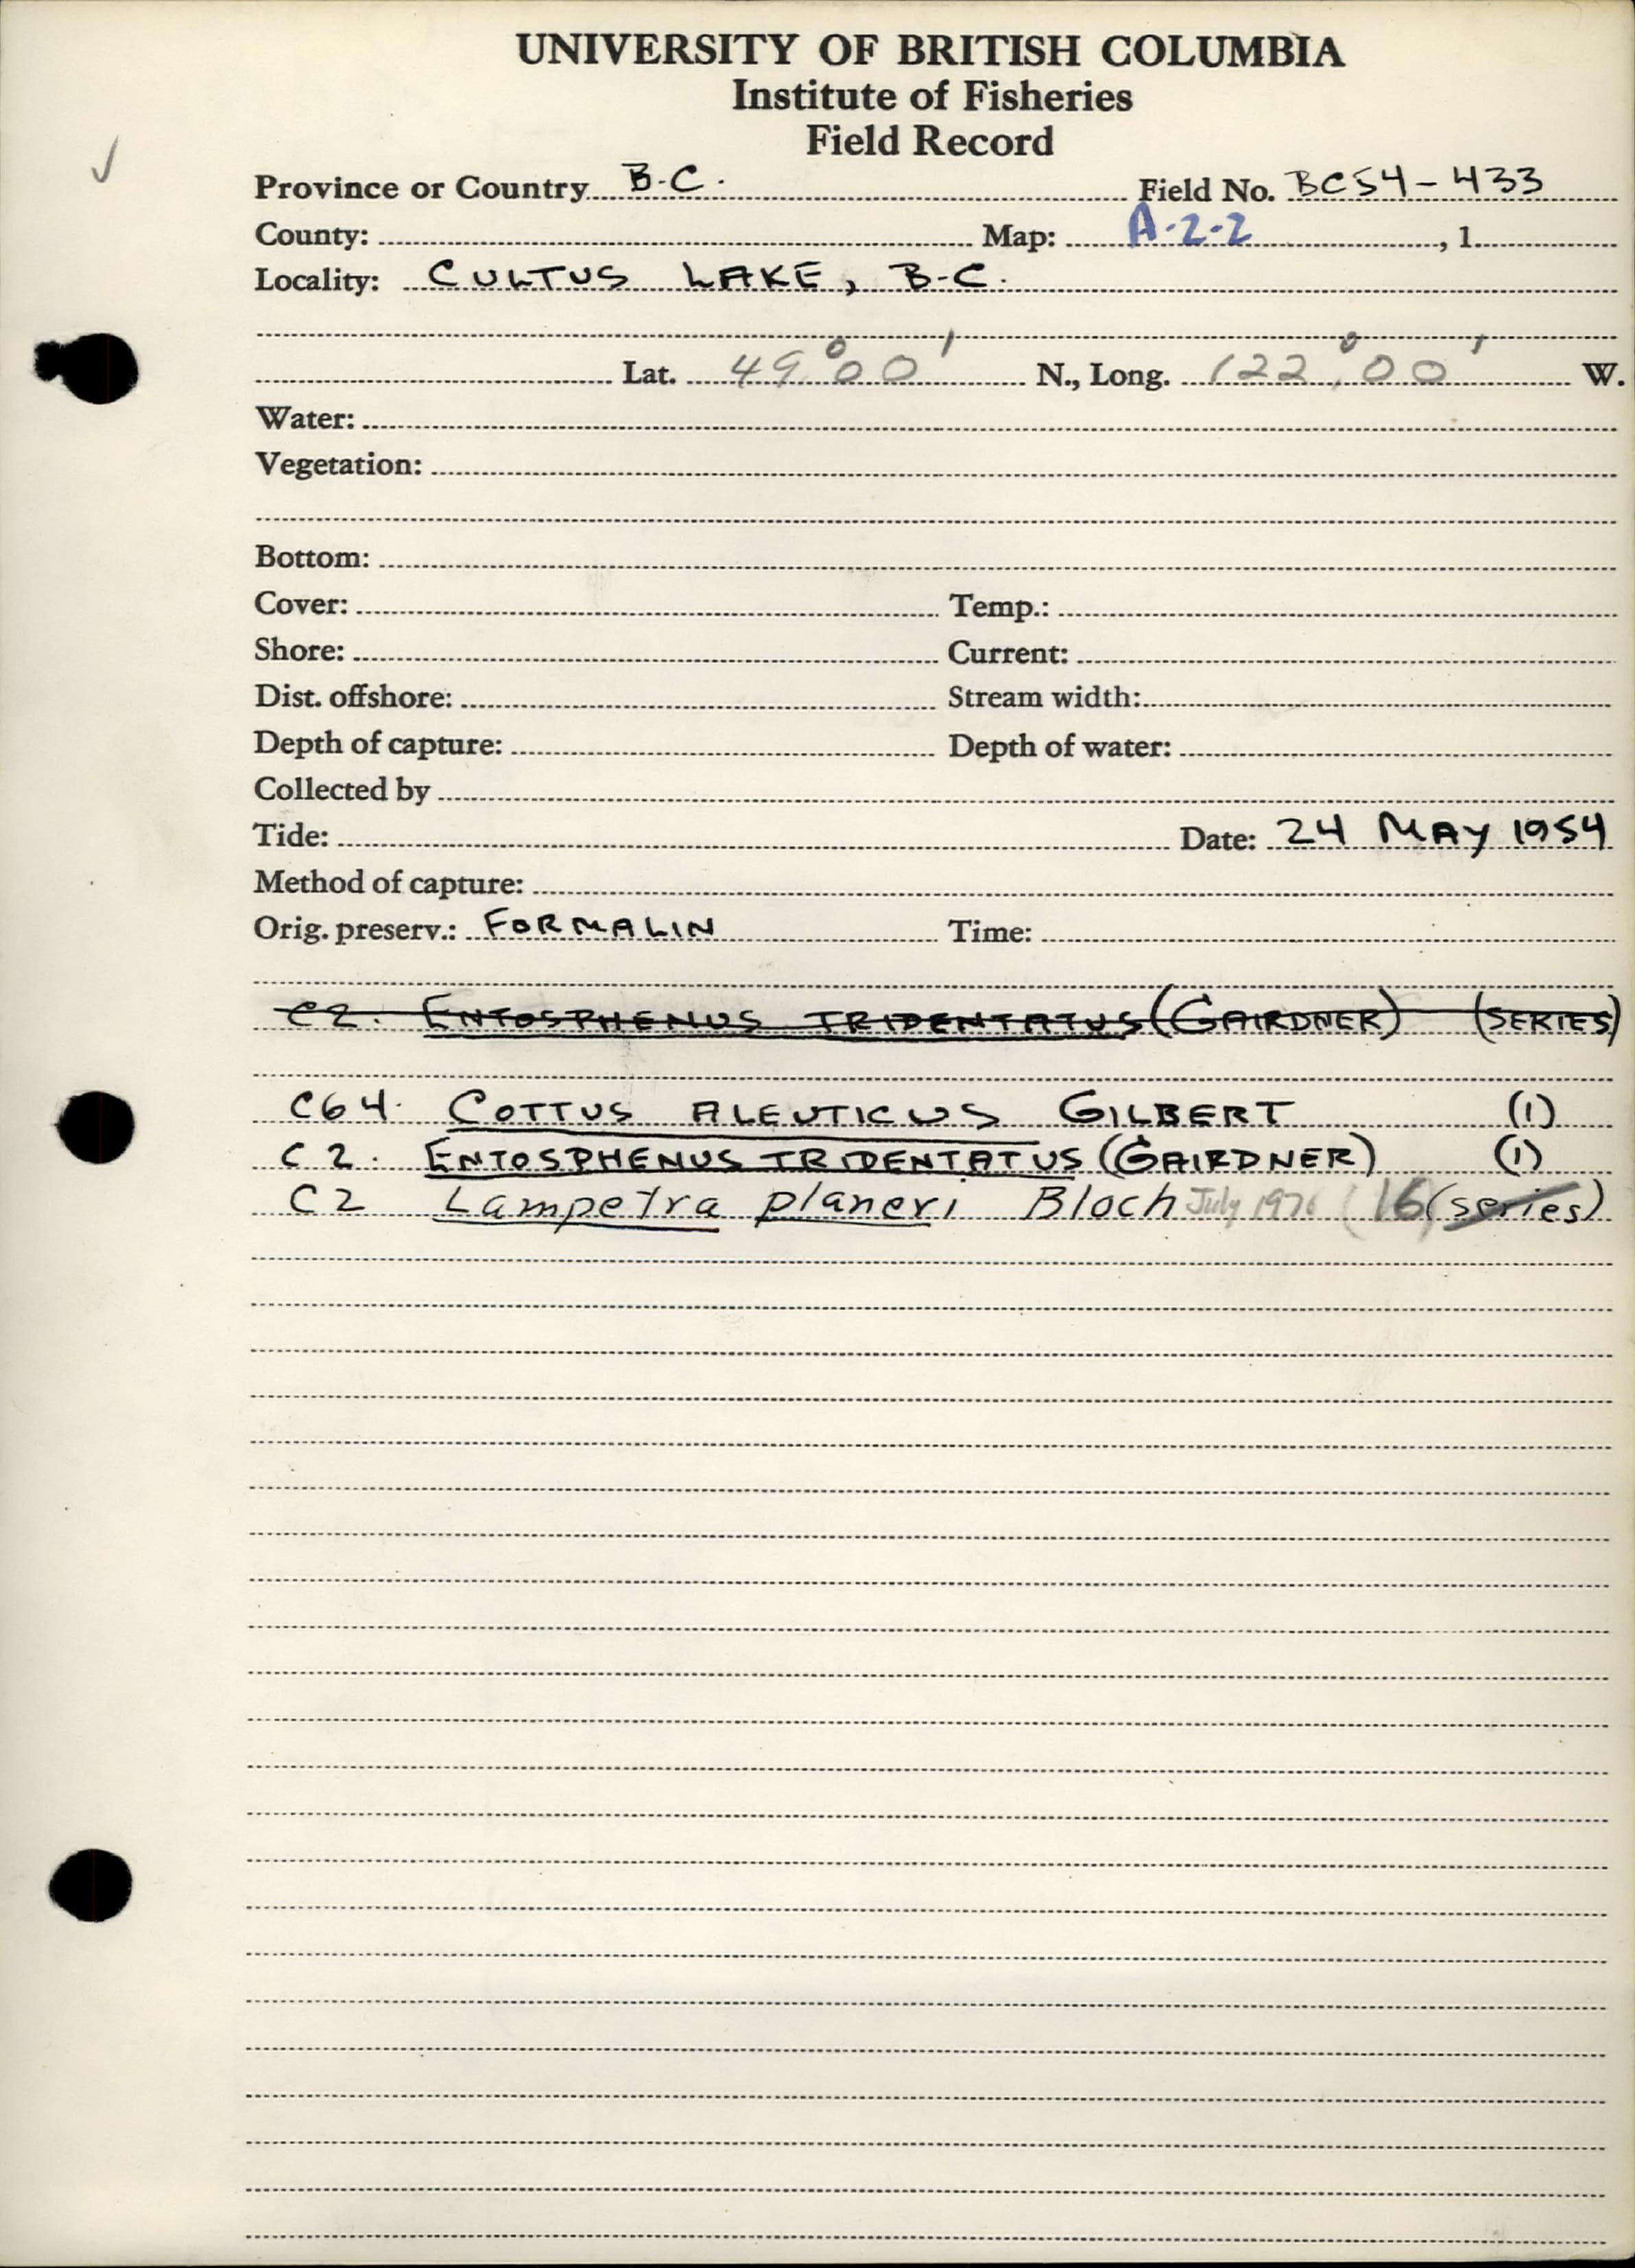 UNIVERSITY OF BRITISH COLUMBIA
Institute of Fisheries
Field Record
Province or Country B.C. Field No. BC54-433
County: Map: A-2-2 , 1
Locality: CULTUS LAKE, B.C.
Lat. 49°00' N., Long. 122°00' W.
Water:
Vegetation:
Bottom:
Cover: Temp.:
Shore: Current:
Dist. offshore: Stream width:
Depth of capture: Depth of water:
Collected by
Tide: Date: 24 MAY 1954
Method of capture:
Orig. preserv.: FORMALIN Time:
C2. ENTOSPHENUS TRIDENTATUS (GAIRDNER) (SERIES)
C64. COTTUS ALEUTICUS GILBERT (1)
C2. ENTOSPHENUS TRIDENTATUS (GAIRDNER) (1)
C2 Lampetra planeri Bloch July 1976 (16) (series)